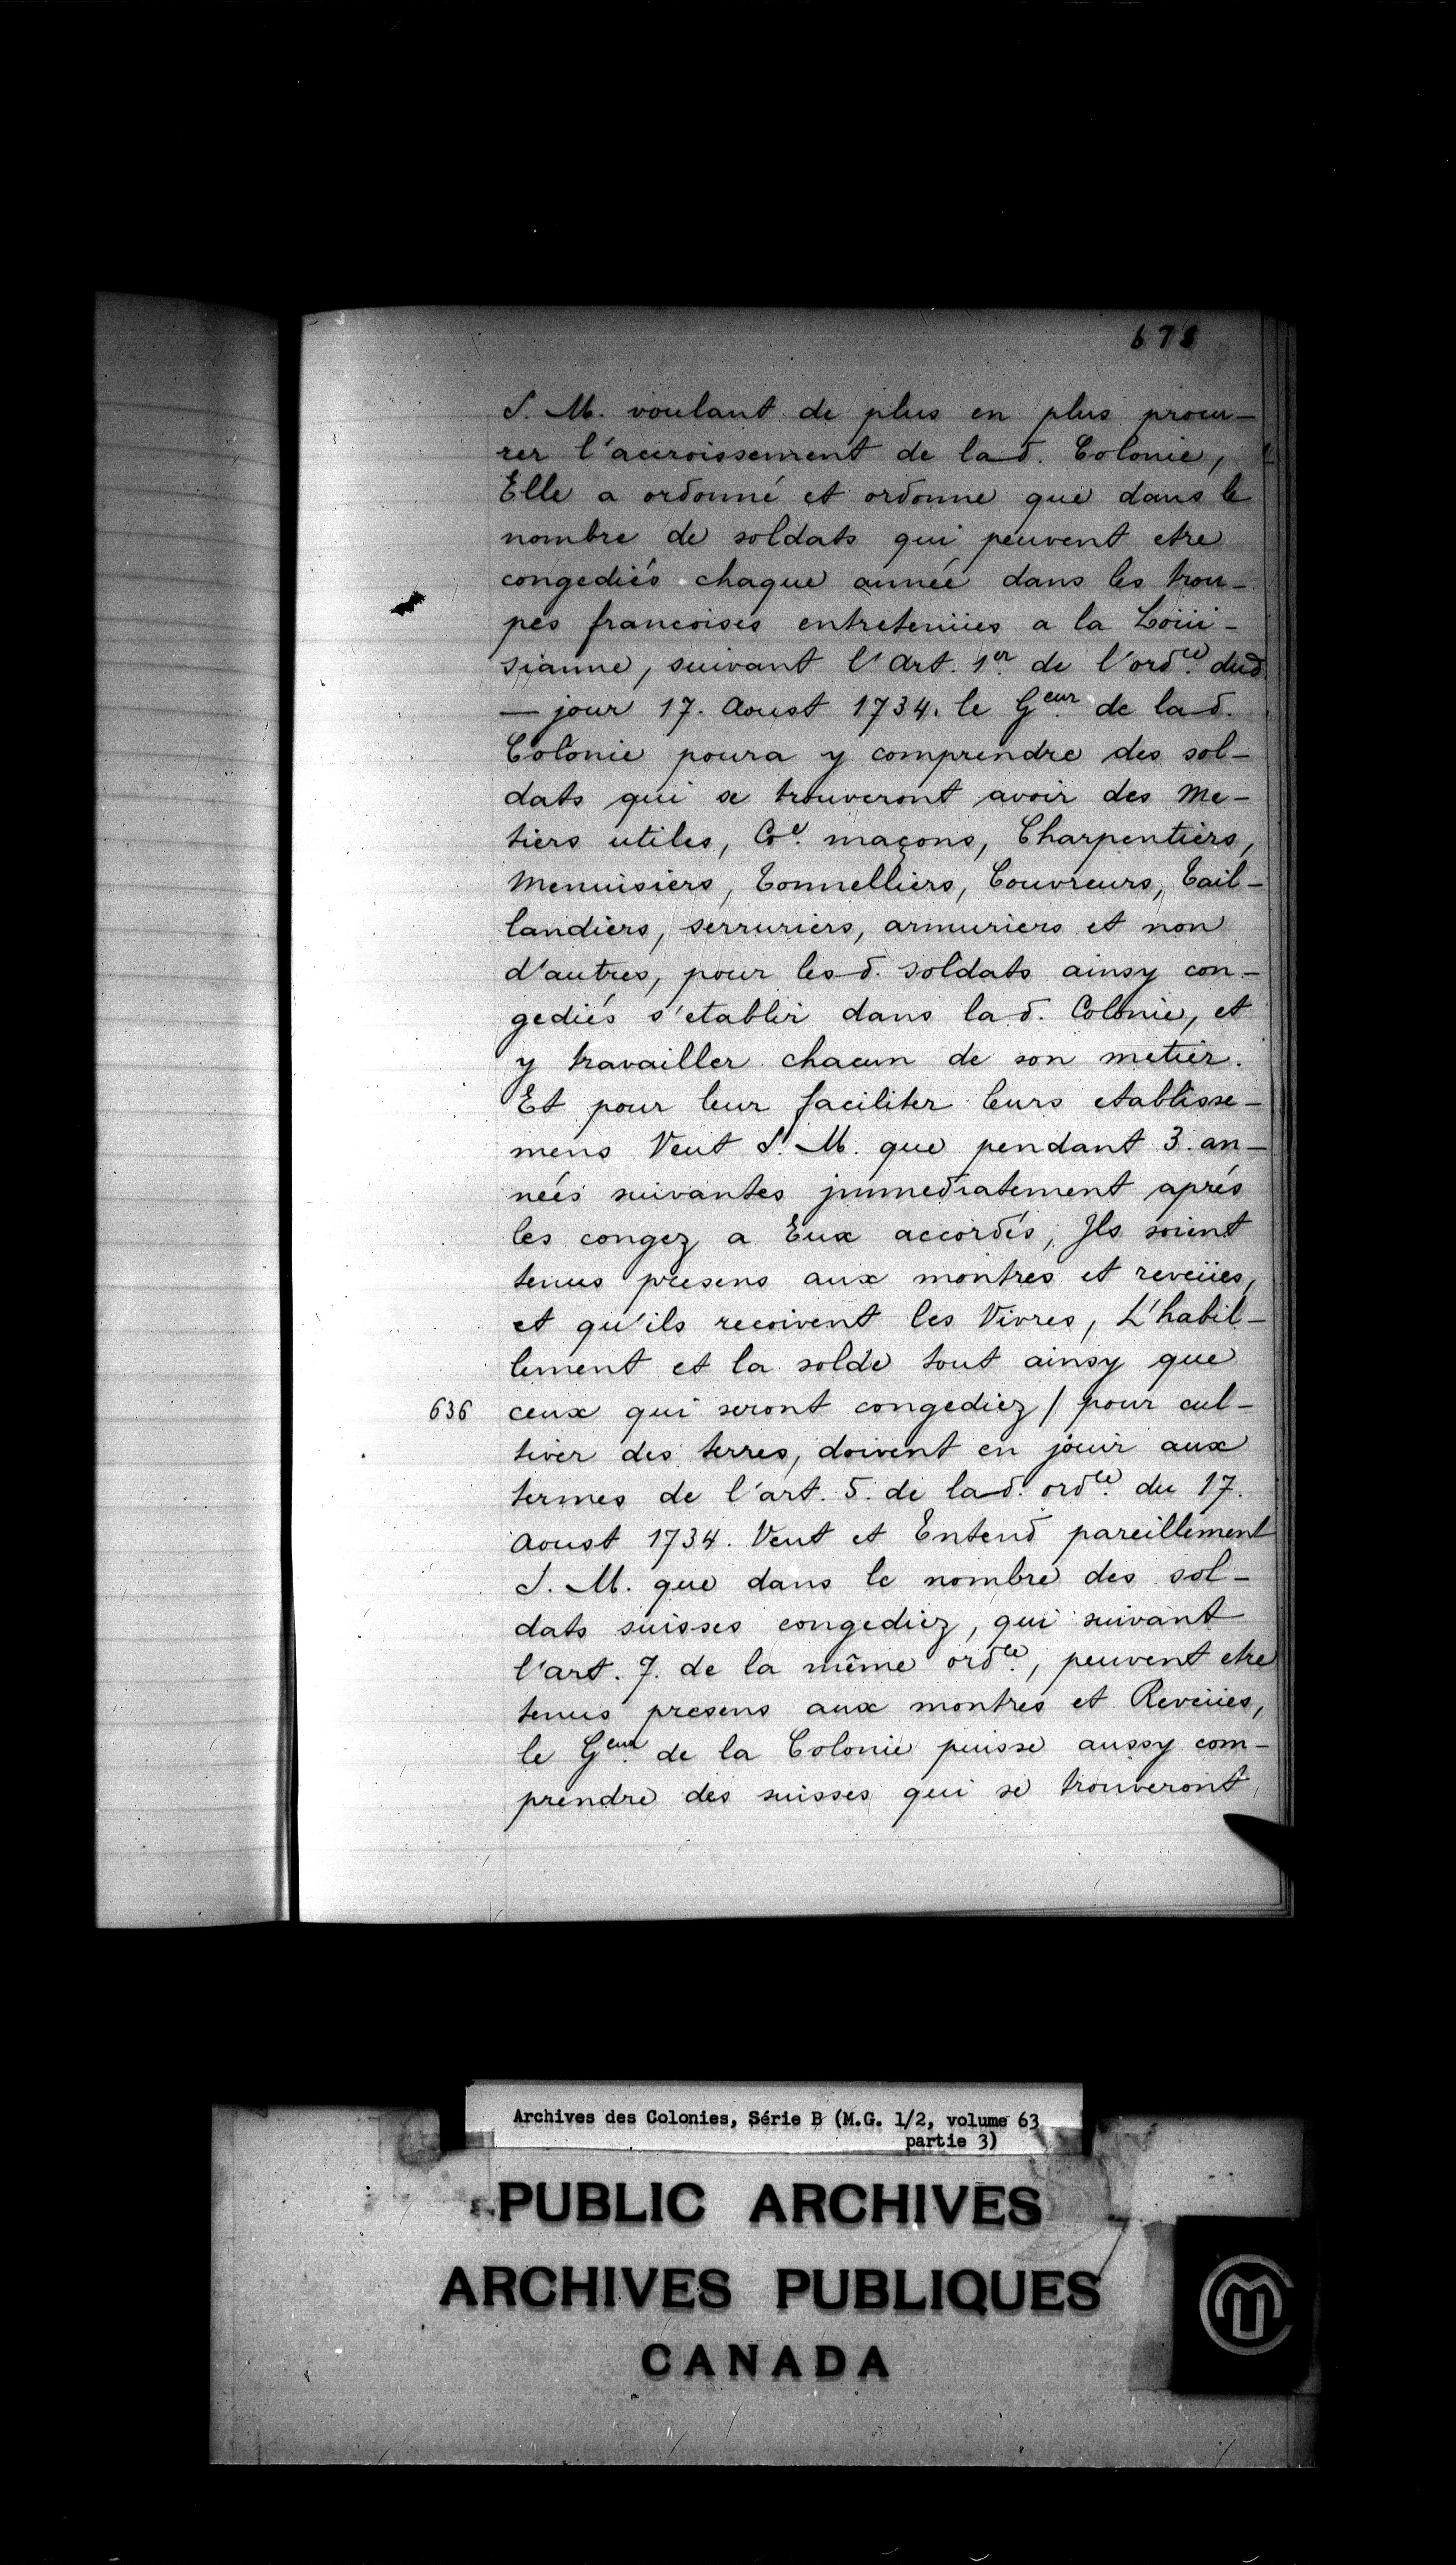 678
S. M. voulant de plus en plus procu-
rer l'accroissement de lad. Colonie,
Elle a ordonné et ordonne que dans le
nombre de soldats qui peuvent etre
congediés chaque année dans les trou-
pes francoises entretenües a la Loüi-
sianne, suivant l'Art. 1er de l'ordce dud.
— jour 17. Aoust 1734. le Geur de lad.
Colonie poura y comprendre des sol-
dats qui se trouveront avoir des me-
tiers utiles, Coe maçons, Charpentiers,
Menuisiers, Tonnelliers, Couvreurs, Tail-
landiers, serruriers, armuriers et non
d'autres, pour lesd. soldats ainsy con-
gediés s'etablir dans lad. Colonie, et
y travailler chacun de son metier.
Et pour leur faciliter leurs etablisse-
mens Veut S. M. que pendant 3. an-
nées suivantes jmmediatement aprés
les congez a Eux accordés, Jls soient
tenus presens aux montres et reveües,
et qu'ils recoivent les Vivres, L'habil-
lement et la solde tout ainsy que
636 ceux qui seront congediez / pour cul-
tiver des terres, doivent en jouir aux
termes de l'art. 5. de lad. ordce du 17.
Aoust 1734. Veut et Entend pareillement
S. M. que dans le nombre des sol-
dats suisses congediez, qui suivant
l'art. 7. de la même ordce, peuvent etre
tenus presens aux montres et Reveües,
le Geur de la Colonie puisse aussy com-
prendre des suisses qui se trouveront
Archives des Colonies, Série B (M.G. 1/2, volume 63
partie 3)
PUBLIC ARCHIVES
ARCHIVES PUBLIQUES
CANADA